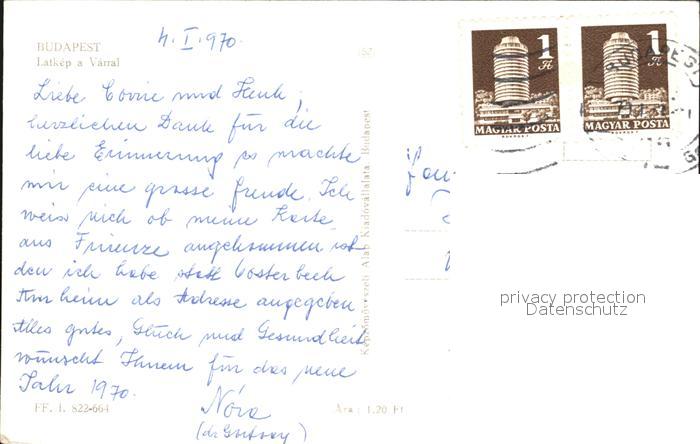 BUDAPEST
Latkép a Várral
4. I. 970.
Liebe Corrie und Henk,
herzlichen Dank für die
liebe Erinnerung es machte
mir eine grosse freude. Ich
weis nich ob meine Karte
aus Firenze angekommen ist
den ich habe statt Oosterbeek
Arnheim als Adresse angegeben
Alles gutes, Glück und Gesundheit
wünscht Ihnem für das neue
Jahr 1970.
Nóra
FF. I. 822-664
Ára: 1,20 Ft
Képzőművészeti Alap Kiadóvállalata, Budapest
1 Ft
MAGYAR POSTA
1 Ft
MAGYAR POSTA
privacy protection
Datenschutz